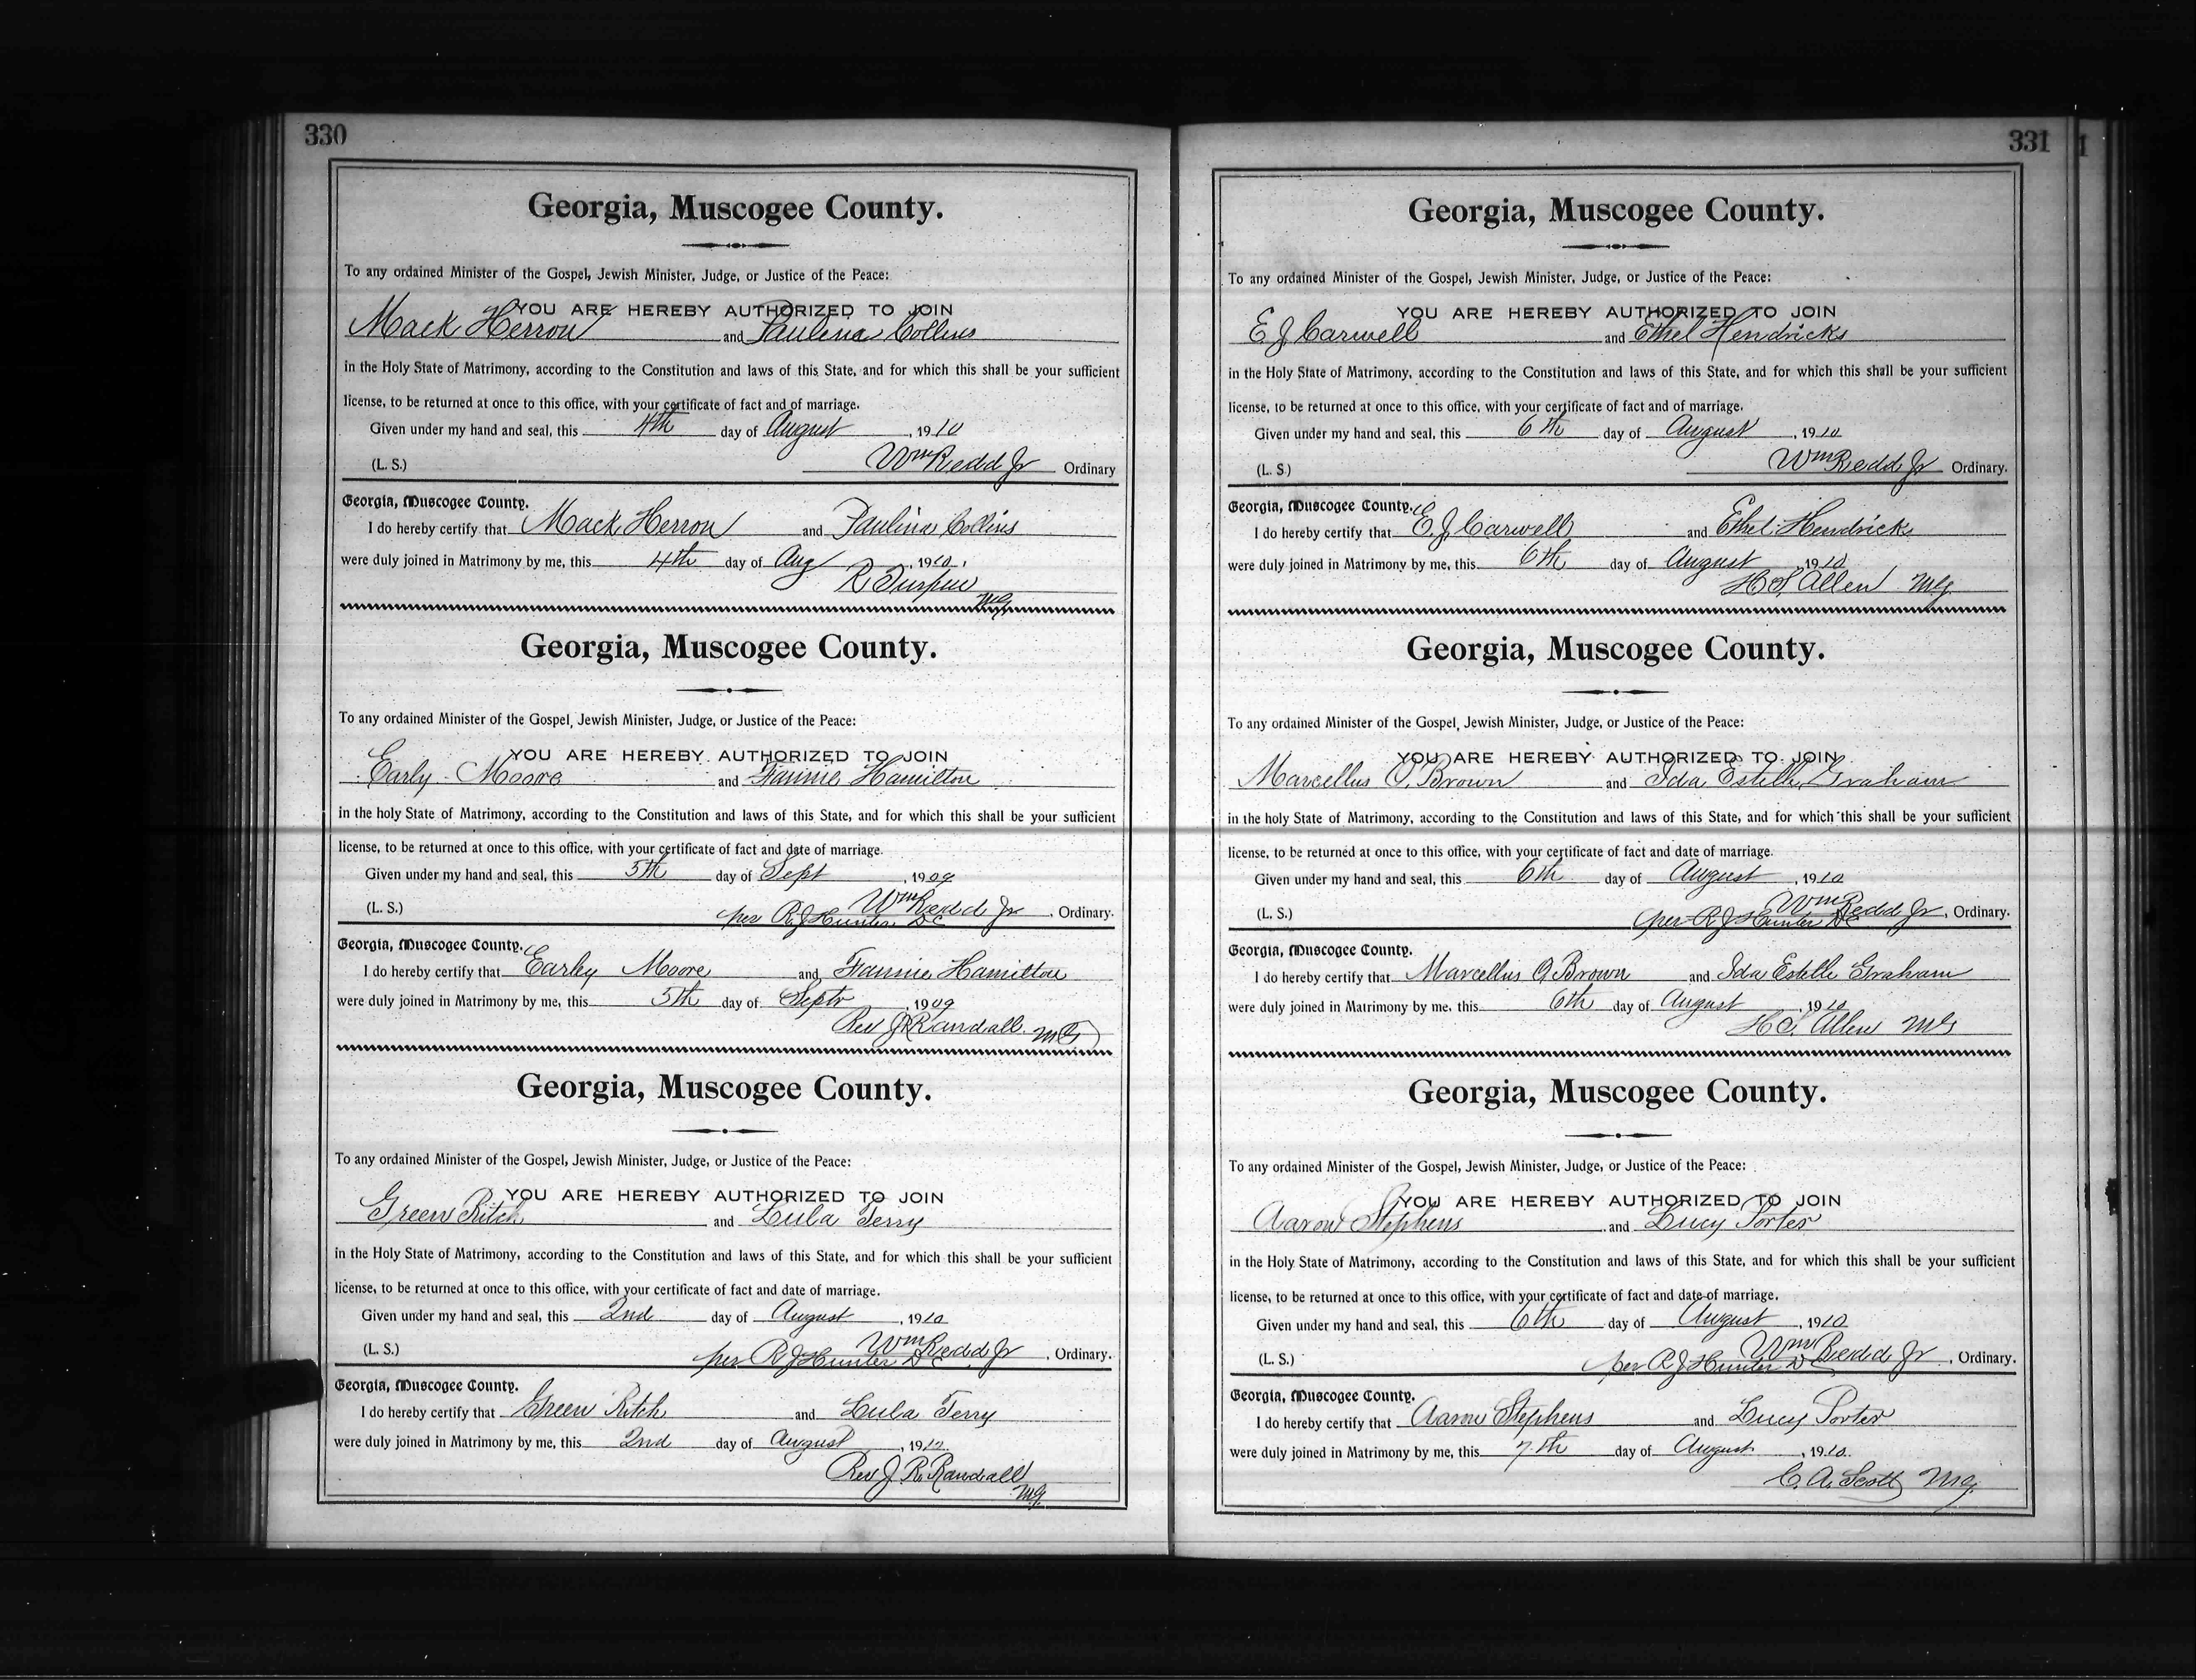 330
Georgia, Muscogee County.
To any ordained Minister of the Gospel, Jewish Minister, Judge, or Justice of the Peace:
YOU ARE HEREBY AUTHORIZED TO JOIN
Mack Herron and Paulena Collins
in the Holy State of Matrimony, according to the Constitution and laws of this State, and for which this shall be your sufficient
license, to be returned at once to this office, with your certificate of fact and of marriage.
Given under my hand and seal, this 4th day of August, 1910
(L. S.) Wm Redd Jr Ordinary
Georgia, Muscogee County.
I do hereby certify that Mack Herron and Paulina Collins
were duly joined in Matrimony by me, this 4th day of Aug, 1910.
R Turpin
MG
Georgia, Muscogee County.
To any ordained Minister of the Gospel, Jewish Minister, Judge, or Justice of the Peace:
YOU ARE HEREBY AUTHORIZED TO JOIN
Early Moore and Fannie Hamilton
in the holy State of Matrimony, according to the Constitution and laws of this State, and for which this shall be your sufficient
license, to be returned at once to this office, with your certificate of fact and date of marriage.
Given under my hand and seal, this 5th day of Sept, 1909
Wm Redd Jr
(L. S.) per R J Hunter DC, Ordinary.
Georgia, Muscogee County.
I do hereby certify that Early Moore and Fannie Hamilton
were duly joined in Matrimony by me, this 5th day of Septr, 1909
Rev J R Randall MG
Georgia, Muscogee County.
To any ordained Minister of the Gospel, Jewish Minister, Judge, or Justice of the Peace:
YOU ARE HEREBY AUTHORIZED TO JOIN
Green Ritch and Lula Terry
in the Holy State of Matrimony, according to the Constitution and laws of this State, and for which this shall be your sufficient
license, to be returned at once to this office, with your certificate of fact and date of marriage.
Given under my hand and seal, this 2nd day of August, 1910
Wm Redd Jr
(L. S.) per R J Hunter DC, Ordinary.
Georgia, Muscogee County.
I do hereby certify that Green Ritch and Lula Terry
were duly joined in Matrimony by me, this 2nd day of August, 1912.
Rev J. R. Randall
MG
331
Georgia, Muscogee County.
To any ordained Minister of the Gospel, Jewish Minister, Judge, or Justice of the Peace:
YOU ARE HEREBY AUTHORIZED TO JOIN
E J Carwell and Ethel Hendricks
in the Holy State of Matrimony, according to the Constitution and laws of this State, and for which this shall be your sufficient
license, to be returned at once to this office, with your certificate of fact and of marriage.
Given under my hand and seal, this 6th day of August, 1910
(L. S.) Wm Redd Jr Ordinary.
Georgia, Muscogee County.
I do hereby certify that E. J. Carwell and Ethel Hendricks
were duly joined in Matrimony by me, this 6th day of August, 1910
H S Allen MG
Georgia, Muscogee County.
To any ordained Minister of the Gospel, Jewish Minister, Judge, or Justice of the Peace:
YOU ARE HEREBY AUTHORIZED TO JOIN
Marcellus O. Brown and Ida Estelle Graham
in the holy State of Matrimony, according to the Constitution and laws of this State, and for which this shall be your sufficient
license, to be returned at once to this office, with your certificate of fact and date of marriage.
Given under my hand and seal, this 6th day of August, 1910
Wm Redd Jr
(L. S.) per R J Hunter DC, Ordinary.
Georgia, Muscogee County.
I do hereby certify that Marcellus O. Brown and Ida Estelle Graham
were duly joined in Matrimony by me, this 6th day of August, 1910
H S. Allen MG
Georgia, Muscogee County.
To any ordained Minister of the Gospel, Jewish Minister, Judge, or Justice of the Peace:
YOU ARE HEREBY AUTHORIZED TO JOIN
Aaron Stephens and Lucy Porter
in the Holy State of Matrimony, according to the Constitution and laws of this State, and for which this shall be your sufficient
license, to be returned at once to this office, with your certificate of fact and date of marriage.
Given under my hand and seal, this 6th day of August, 1910
Wm Redd Jr
(L. S.) per R J Hunter DC, Ordinary.
Georgia, Muscogee County.
I do hereby certify that Aaron Stephens and Lucy Porter
were duly joined in Matrimony by me, this 7th day of August, 1910.
C. A. Scott MG